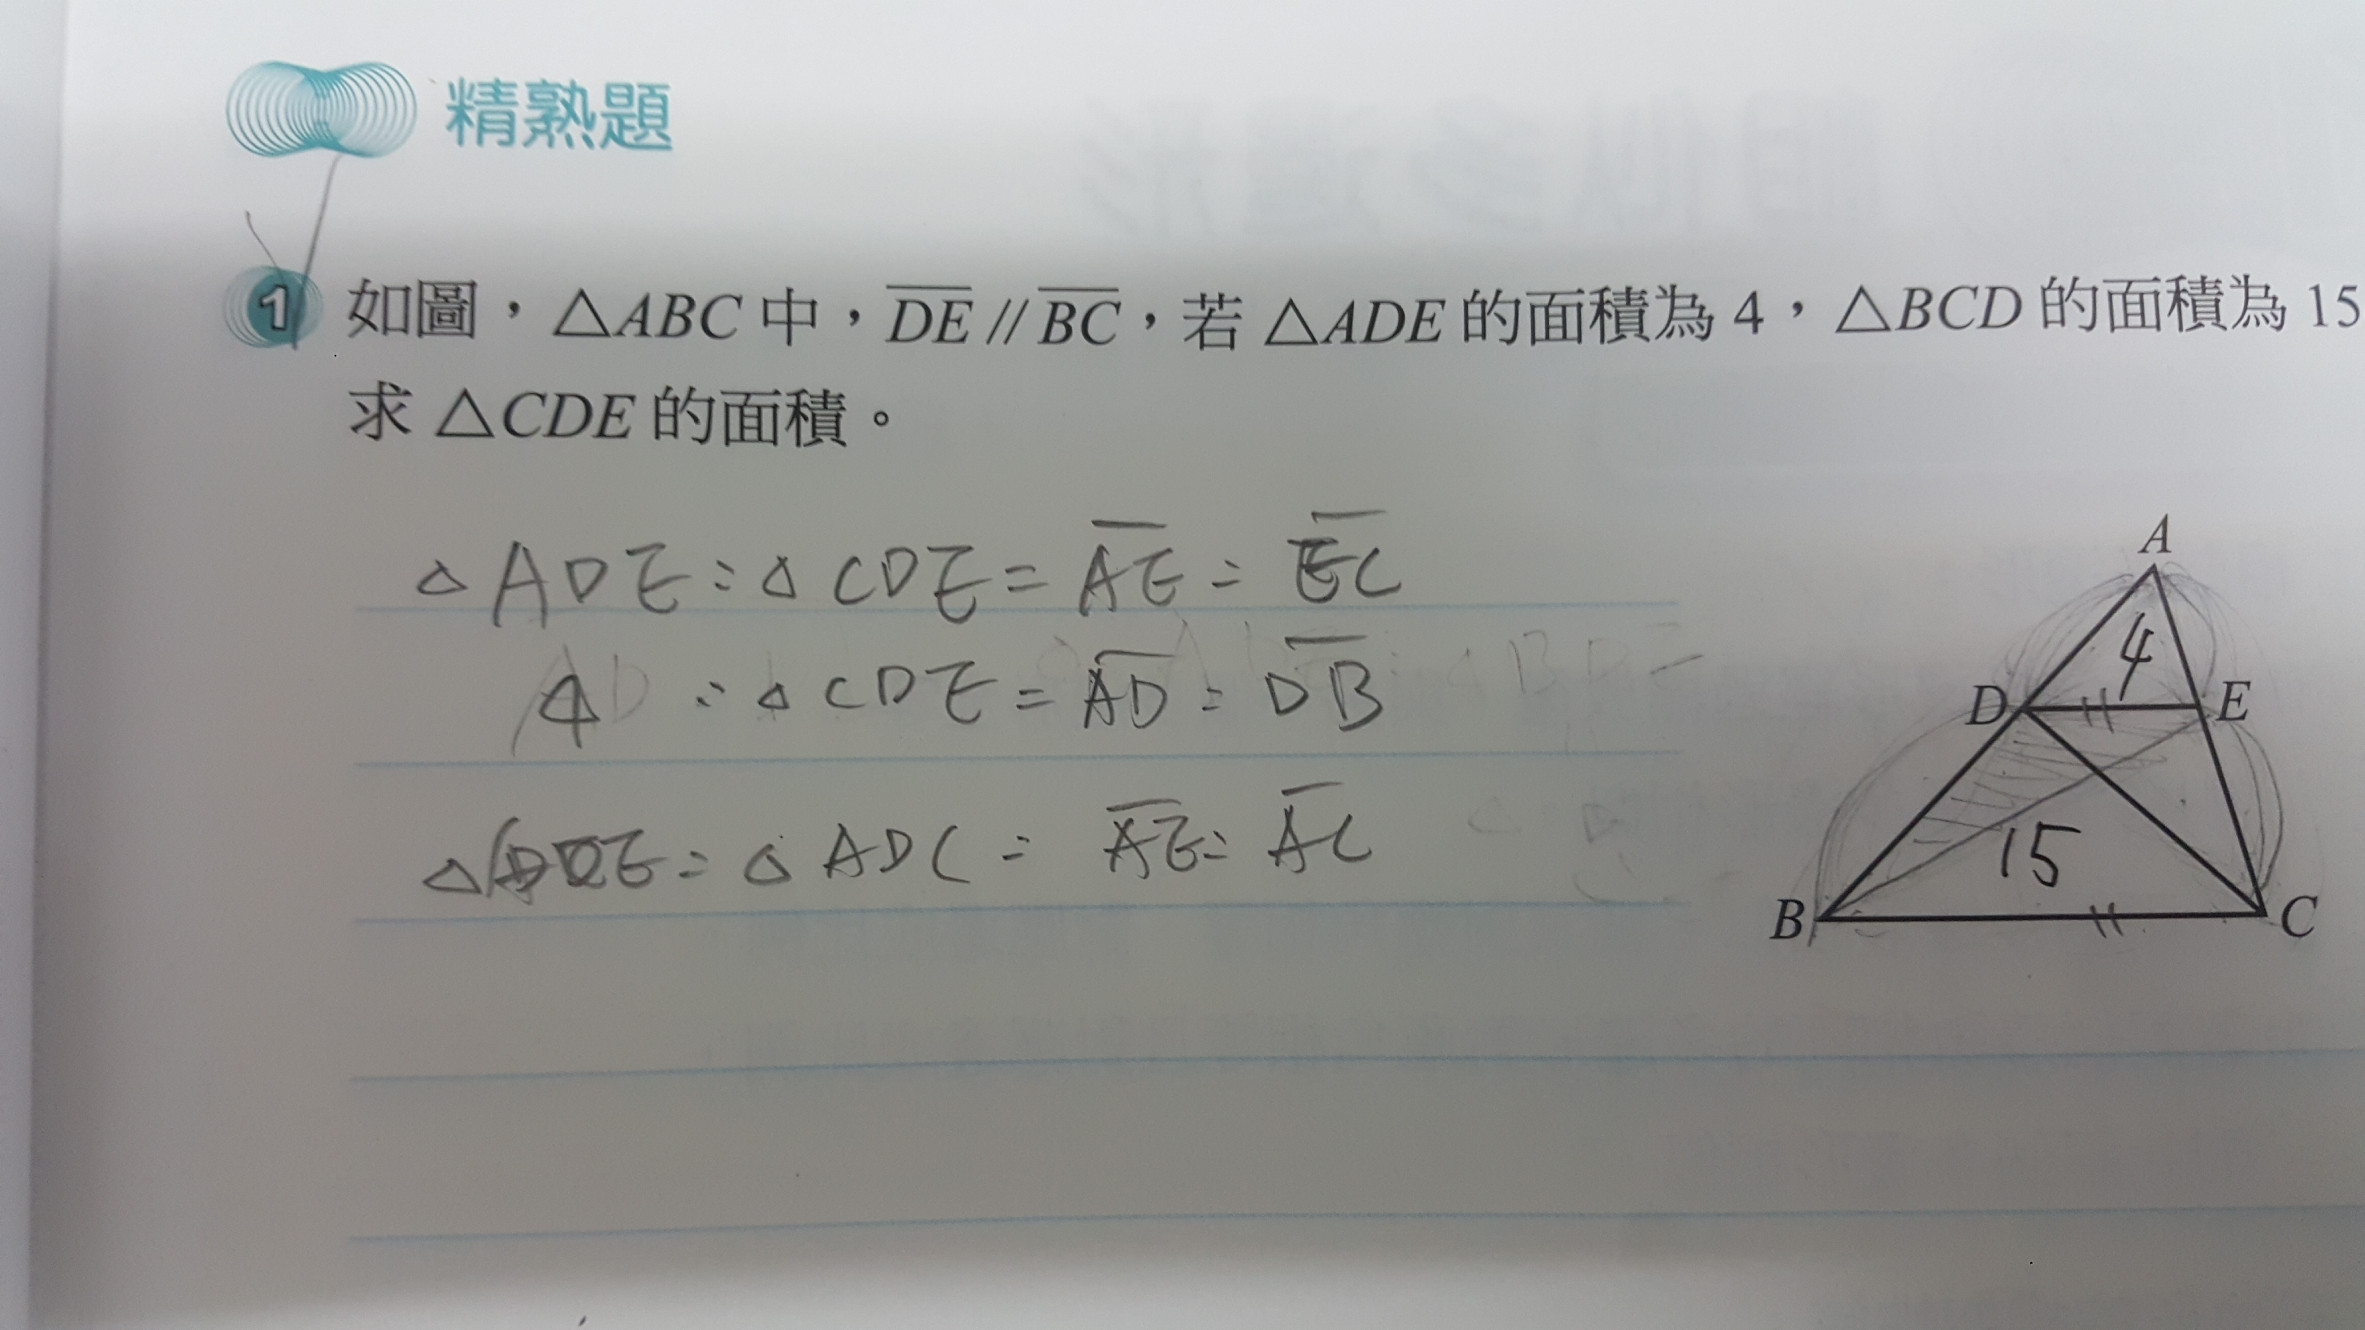 精熟題
1 如圖，△ABC 中，DE // BC，若 △ADE 的面積為 4，△BCD 的面積為 15
求 △CDE 的面積。
△ADE : △CDE = AE : EC
4 : △CDE = AD : DB
: △ADC = AE : AC
A
4
D E
15
B C